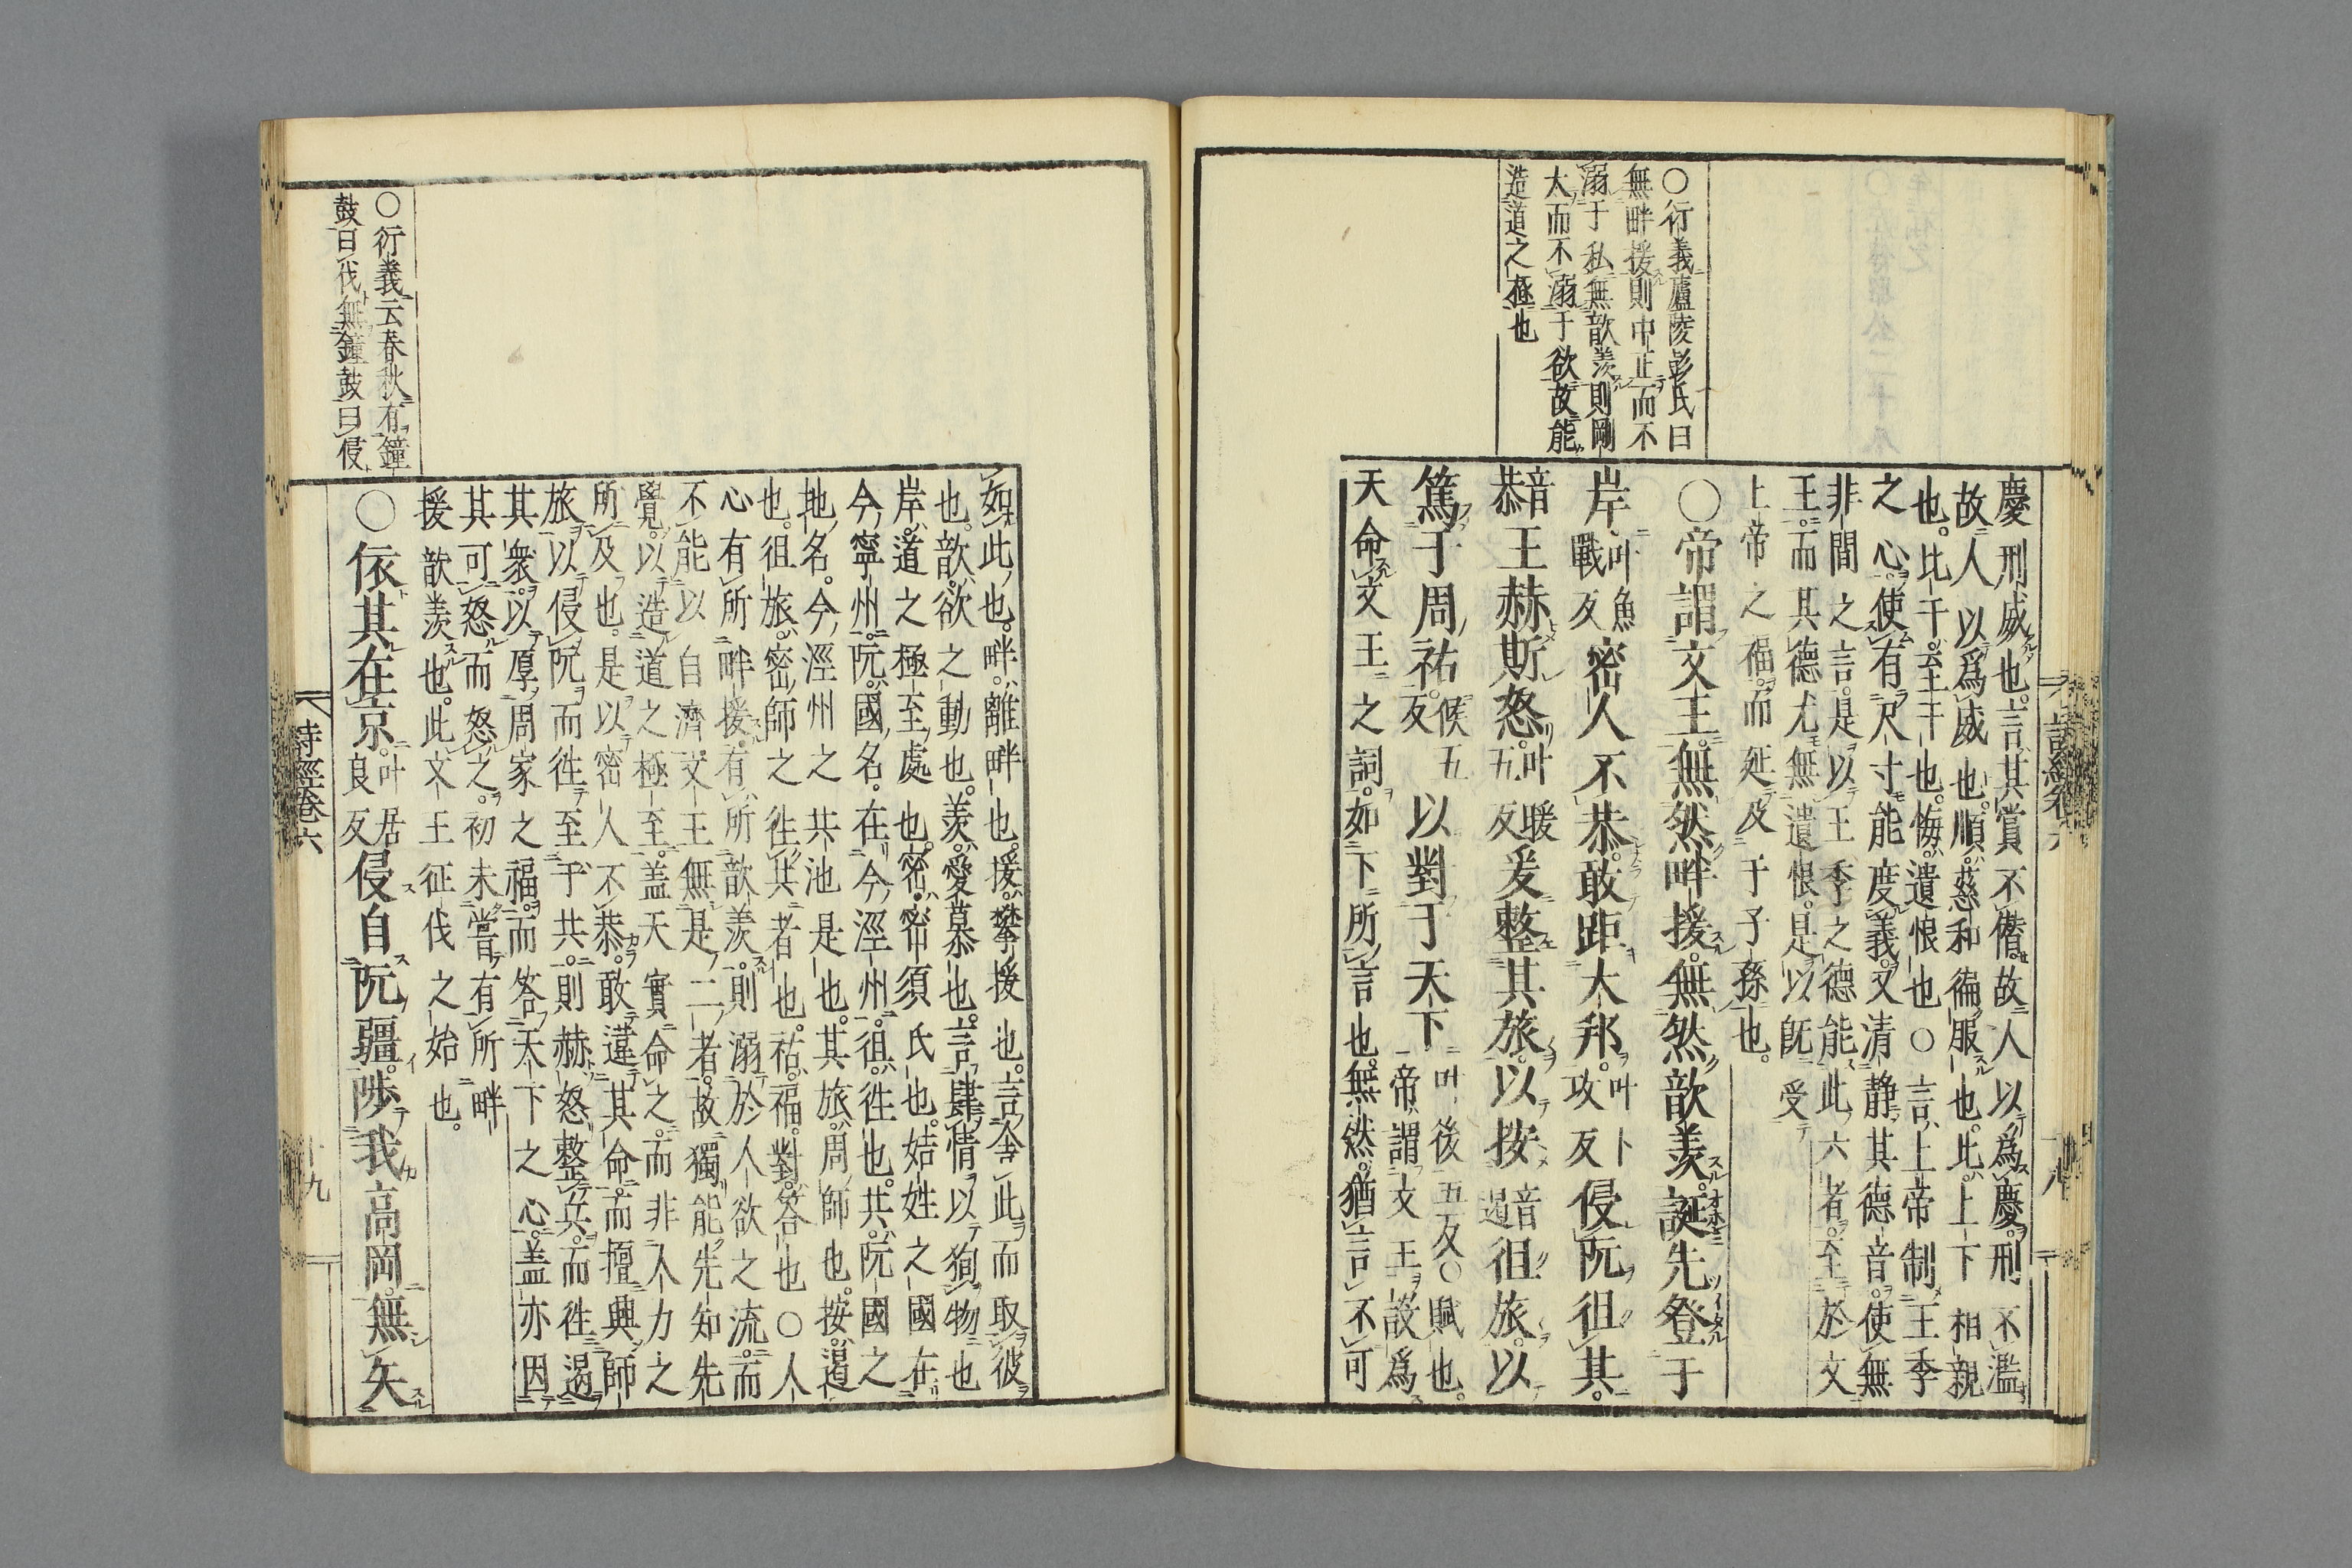 ○行義廬陵彭氏曰
無畔援則中正而不
溺于私無歆羨則剛
大而不溺于欲故能
造道之極也
慶刑威也言其賞不僭故人以爲慶刑不濫
故人以爲威也順慈和徧服也比上下相親
也比于至于也悔遺恨也○言上帝制王季
之心使有尺寸能度義又清静其德音使無
非間之言是以王季之德能此六者至於文
王而其德尤無遺恨是以既受
上帝之福而延及于子孫也
○帝謂文王無然畔援無然歆羨誕先登于
岸叶魚戰反密人不恭敢距大邦叶卜攻反侵阮徂共
音恭王赫斯怒叶暖五反爰整其旅以按音遏徂旅以
篤于周祜候五反以對于天下叶後五反○賦也
帝謂文王設爲
天命文王之詞如下所言也無然猶言不可
詩經卷六
十八
如此也畔離畔也援攀援也言舍此而取彼
也歆欲之動也羨愛慕也言肆情以狥物也
岸道之極至處也密密須氏也姞姓之國在
今寧州阮國名在今涇州徂往也共阮國之
地名今涇州之共池是也其旅周師也按遏
也徂旅密師之往共者也祜福對答也○人
心有所畔援有所歆羨則溺於人欲之流而
不能以自濟文王無是二者故獨能先知先
覺以造道之極至蓋天實命之而非人力之
所及也是以密人不恭敢違其命而擅興師
旅以侵阮而往至于共則赫怒整兵而往遏
其衆以厚周家之福而答天下之心蓋亦因
其可怒而怒之初未嘗有所畔
援歆羨也此文王征伐之始也
○依其在京叶居良反侵自阮疆陟我高岡無矢
○行義云春秋有鐘
鼓曰伐無鐘鼓曰侵
詩經卷六
十九